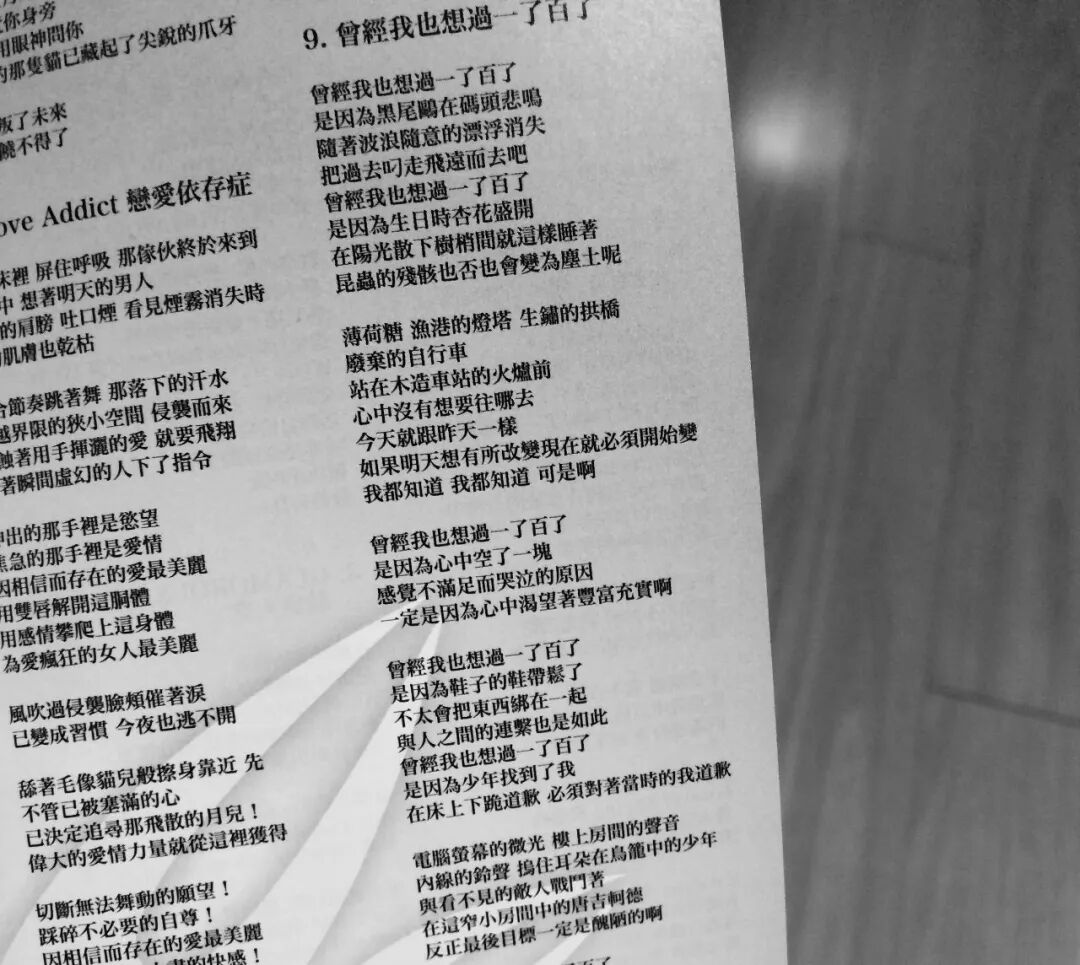 你身旁
用眼神問你
的那隻貓已藏起了尖銳的爪牙
叛了未來
饒不得了
ove Addict 戀愛依存症
床裡 屏住呼吸 那傢伙終於來到
中 想著明天的男人
的肩膀 吐口煙 看見煙霧消失時
肌膚也乾枯
合節奏跳著舞 那落下的汗水
越界限的狹小空間 侵襲而來
蝕著用手揮灑的愛 就要飛翔
著瞬間虛幻的人下了指令
出的那手裡是慾望
焦急的那手裡是愛情
因相信而存在的愛最美麗
用雙唇解開這胴體
用感情攀爬上這身體
為愛瘋狂的女人最美麗
風吹過侵襲臉頰催著淚
已變成習慣 今夜也逃不開
舔著毛像貓兒般擦身靠近 先
不管已被塞滿的心
已決定追尋那飛散的月兒！
偉大的愛情力量就從這裡獲得
切斷無法舞動的願望！
踩碎不必要的自尊！
因相信而存在的愛最美麗
的快感！
9. 曾經我也想過一了百了
曾經我也想過一了百了
是因為黑尾鷗在碼頭悲鳴
隨著波浪隨意的漂浮消失
把過去叼走飛遠而去吧
曾經我也想過一了百了
是因為生日時杏花盛開
在陽光散下樹梢間就這樣睡著
昆蟲的殘骸也否也會變為塵土呢
薄荷糖 漁港的燈塔 生鏽的拱橋
廢棄的自行車
站在木造車站的火爐前
心中沒有想要往哪去
今天就跟昨天一樣
如果明天想有所改變現在就必須開始變
我都知道 我都知道 可是啊
曾經我也想過一了百了
是因為心中空了一塊
感覺不滿足而哭泣的原因
一定是因為心中渴望著豐富充實啊
曾經我也想過一了百了
是因為鞋子的鞋帶鬆了
不太會把東西綁在一起
與人之間的連繫也是如此
曾經我也想過一了百了
是因為少年找到了我
在床上下跪道歉 必須對著當時的我道歉
電腦螢幕的微光 樓上房間的聲音
內線的鈴聲 摀住耳朵在鳥籠中的少年
與看不見的敵人戰鬥著
在這窄小房間中的唐吉軻德
反正最後目標一定是醜陋的啊
一了百了